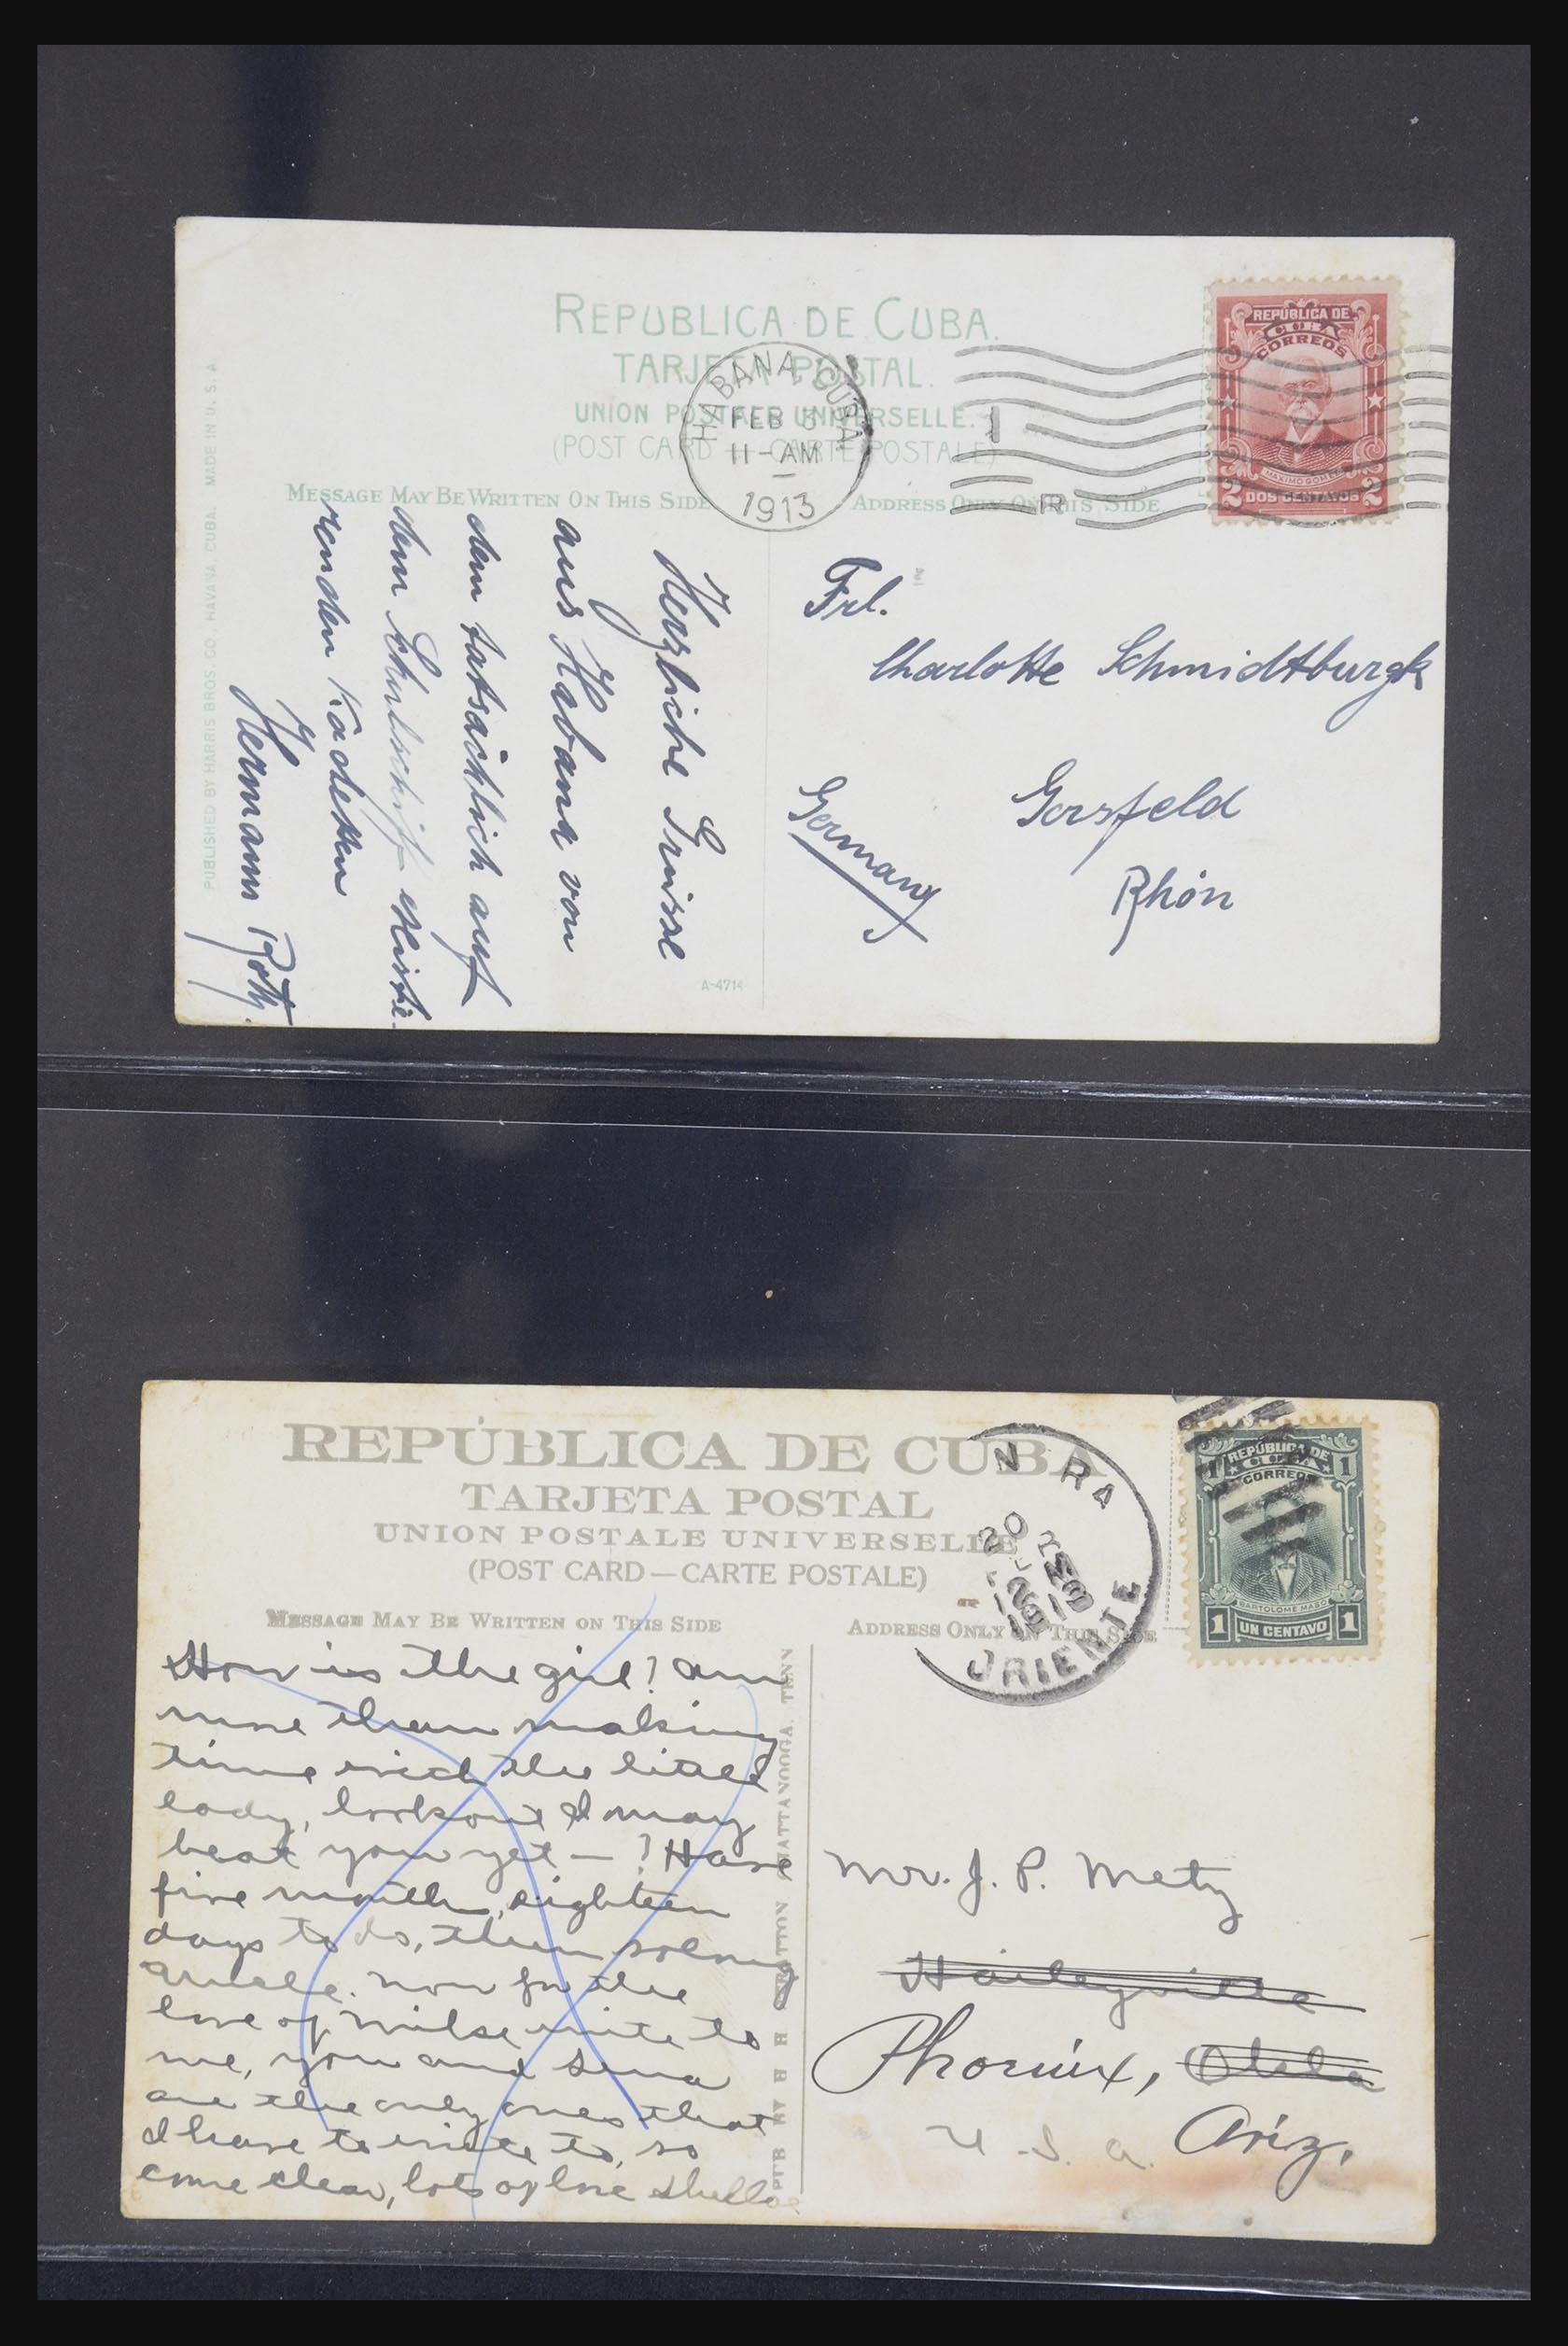 REPUBLICA DE CUBA.
TARJETA POSTAL.
UNION POSTALE UNIVERSELLE.
(POST CARD — CARTE POSTALE)
MESSAGE MAY BE WRITTEN ON THIS SIDE
ADDRESS ONLY ON THIS SIDE
HABANA, CUBA
FEB 3
11-AM
1913
REPÚBLICA DE
CUBA
CORREOS
MAXIMO GOMEZ
2 DOS CENTAVOS 2
Herzliche Grüsse
aus Habana von
dem tatsächlich auf
dem Schulschiff existie-
renden Kadetten
Hermann Röth.
PUBLISHED BY HARRIS BROS. CO. HAVANA CUBA. MADE IN U.S.A
A-4714
Frl.
Charlotte Schmidtburgk
Gersfeld
Rhön
Germany
REPÚBLICA DE CUBA
TARJETA POSTAL
UNION POSTALE UNIVERSELLE
(POST CARD—CARTE POSTALE)
MESSAGE MAY BE WRITTEN ON THIS SIDE
ADDRESS ONLY ON THIS SIDE
N RA
20
ORIENTE
1 REPÚBLICA DE 1
CUBA
CORREOS
BARTOLOMÉ MASÓ
1 UN CENTAVO 1
How is the girl? am
more than making
time with the little
lady, lookout I may
beat you yet — ? Have
five months, eighteen
days to do, then
now for the
love of write to
me, you and
are the only ones that
I have to write to, so
come clean, lots of love
CHATTANOOGA, TENN
Mr. J. P. Metz
Haileyville
Phoenix, Okla
U.S.A. Ariz.